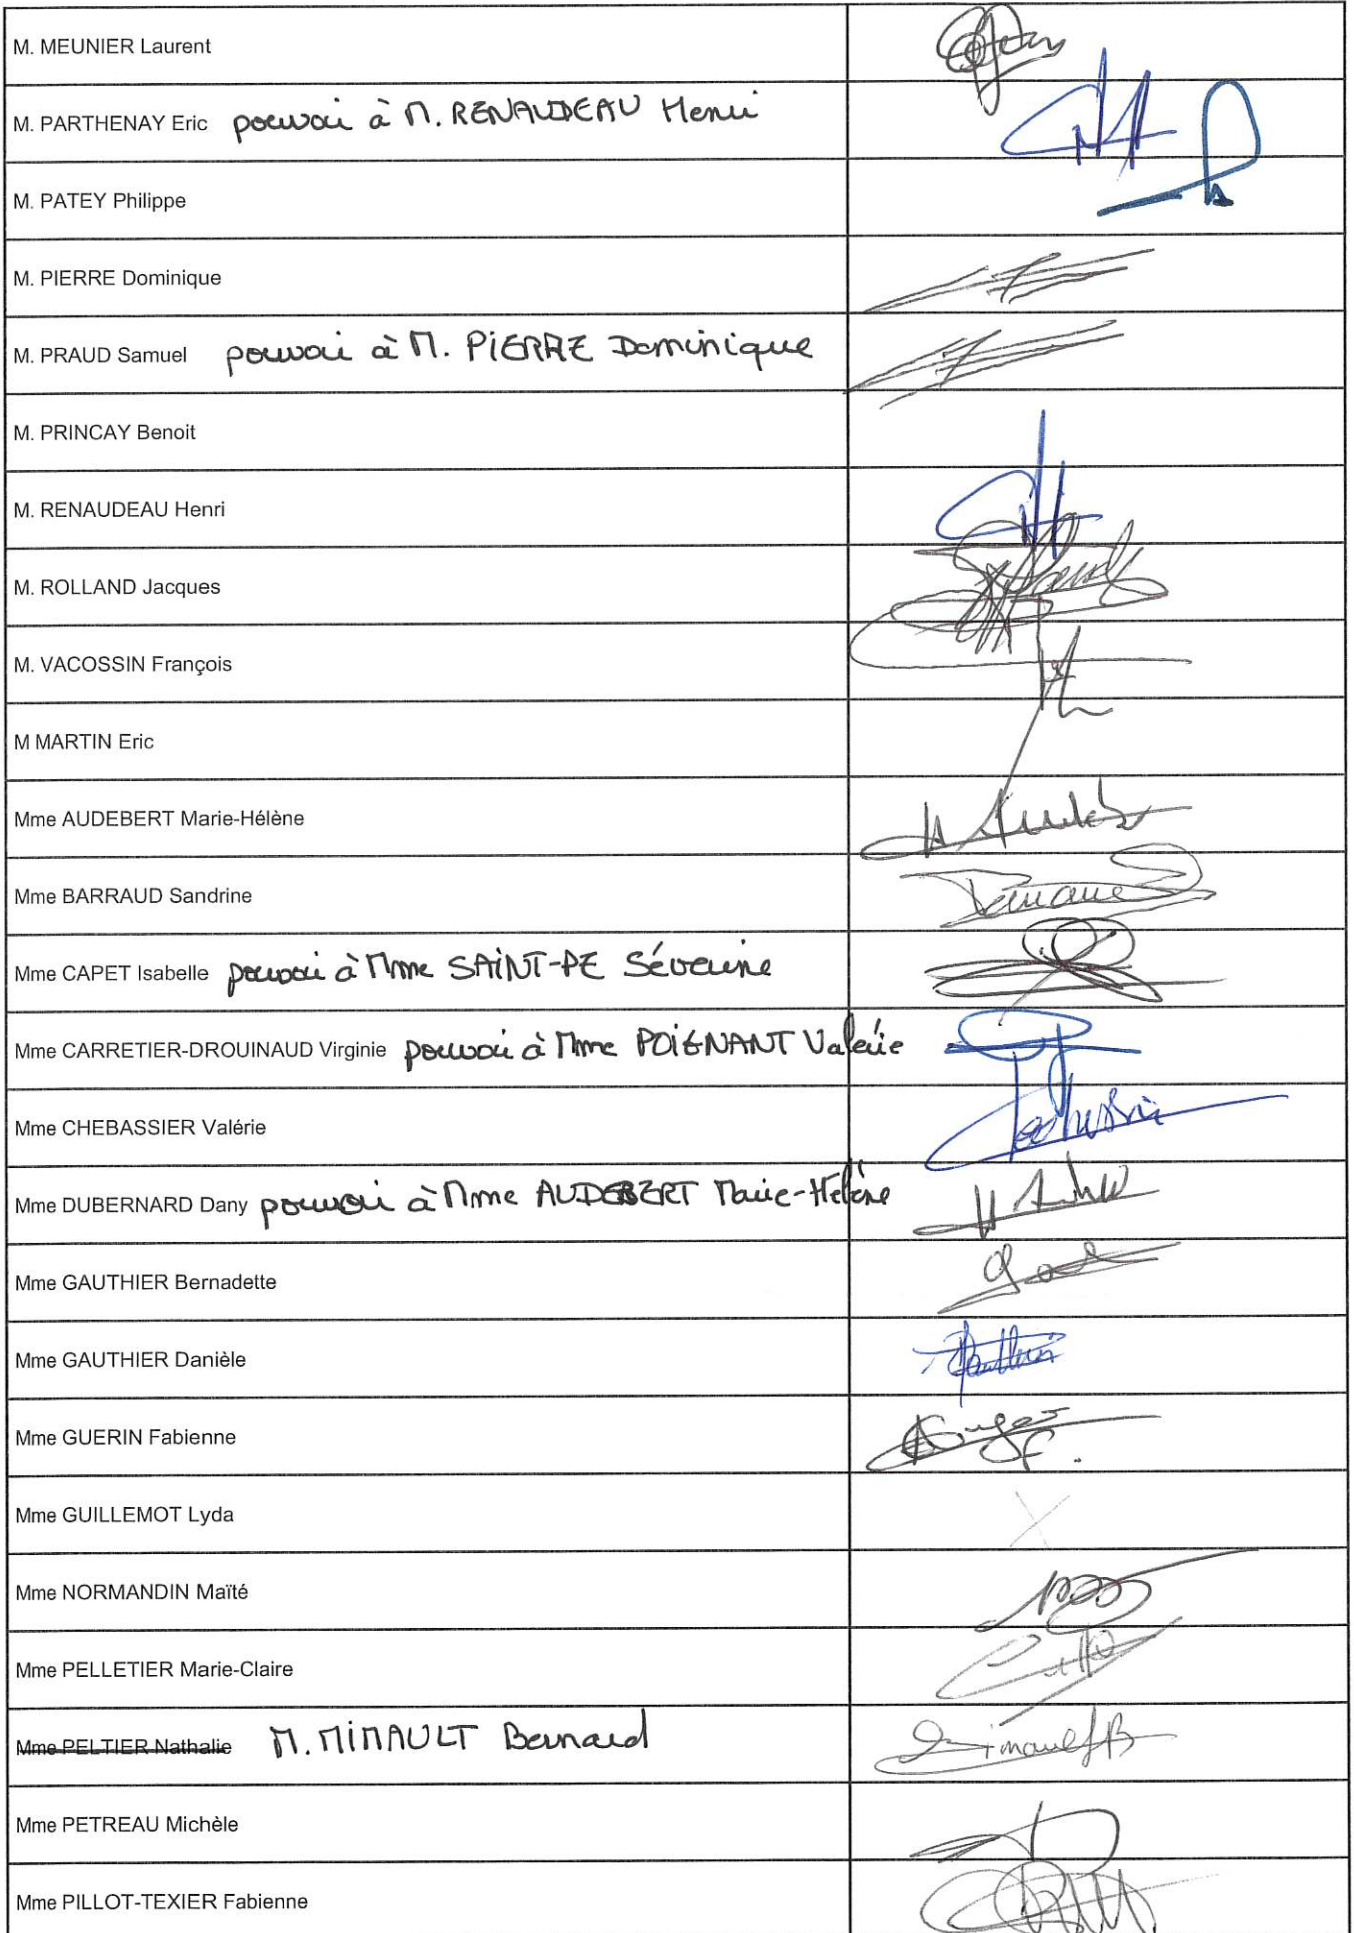 M. MEUNIER Laurent
M. PARTHENAY Eric pouvoir à M. RENAUDEAU Henri
M. PATEY Philippe
M. PIERRE Dominique
M. PRAUD Samuel pouvoir à M. PIERRE Dominique
M. PRINCAY Benoit
M. RENAUDEAU Henri
M. ROLLAND Jacques
M. VACOSSIN François
M MARTIN Eric
Mme AUDEBERT Marie-Hélène
Mme BARRAUD Sandrine
Mme CAPET Isabelle pouvoir à Mme SAINT-PE Séverine
Mme CARRETIER-DROUINAUD Virginie pouvoir à Mme POIGNANT Valérie
Mme CHEBASSIER Valérie
Mme DUBERNARD Dany pouvoir à Mme AUDEBERT Marie-Hélène
Mme GAUTHIER Bernadette
Mme GAUTHIER Danièle
Mme GUERIN Fabienne
Mme GUILLEMOT Lyda
Mme NORMANDIN Maïté
Mme PELLETIER Marie-Claire
Mme PELTIER Nathalie M. MIMAULT Bernard
Mme PETREAU Michèle
Mme PILLOT-TEXIER Fabienne